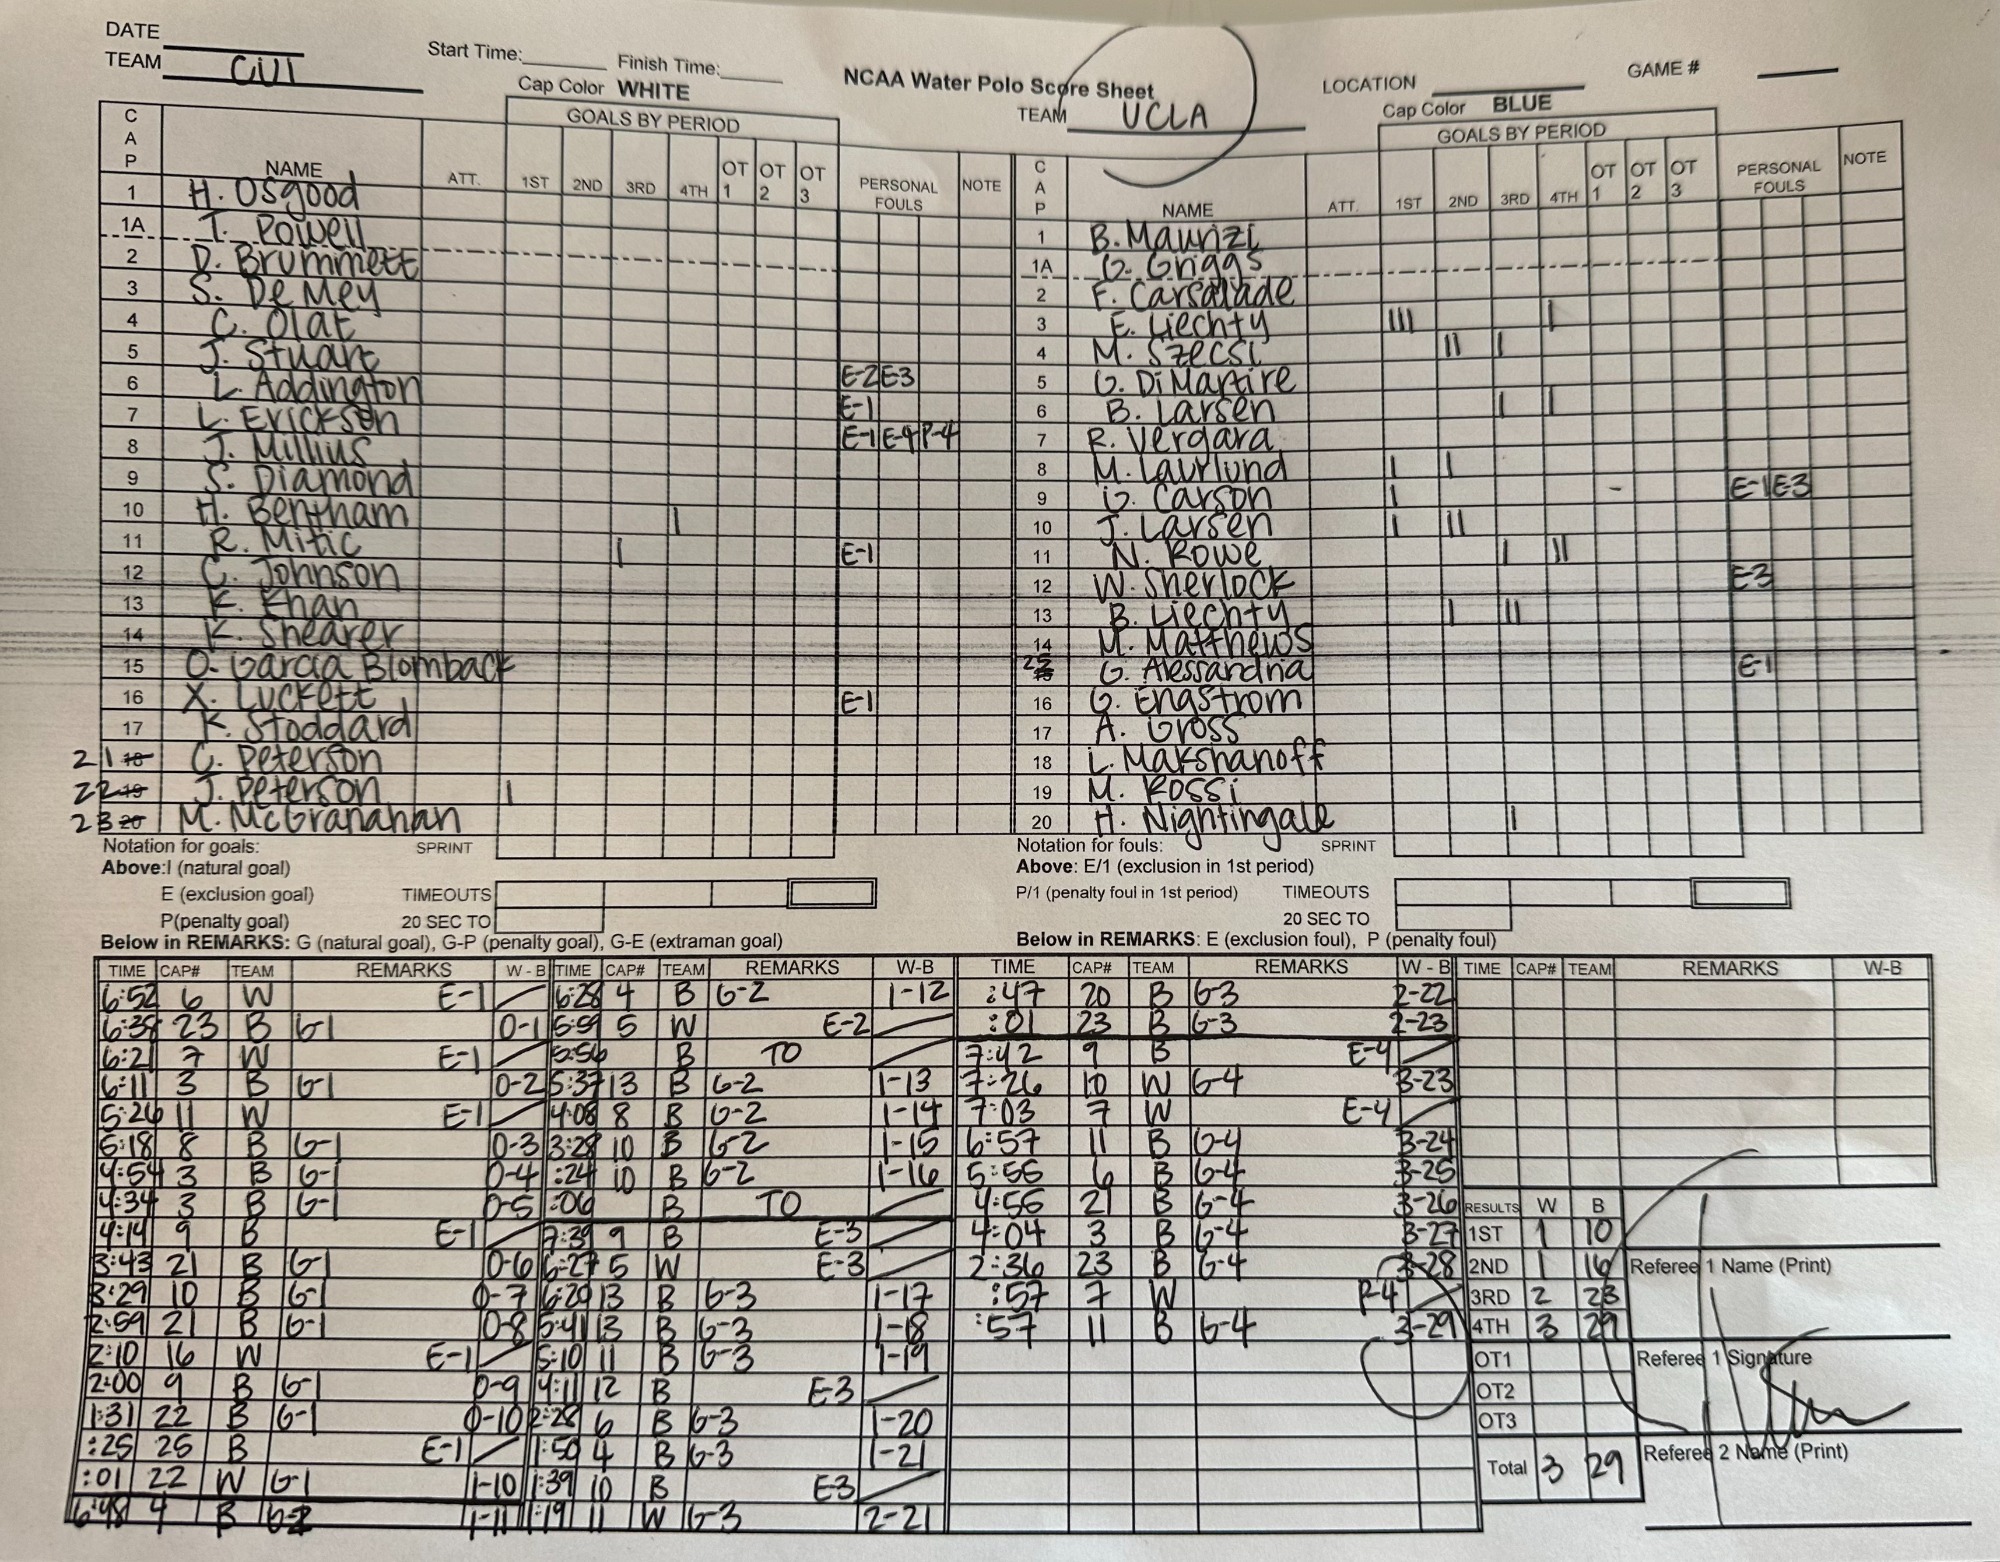 DATE
TEAM CUI Start Time: Finish Time: NCAA Water Polo Score Sheet LOCATION GAME #
Cap Color WHITE TEAM UCLA Cap Color BLUE
GOALS BY PERIOD GOALS BY PERIOD
CAP NAME ATT. 1ST 2ND 3RD 4TH OT 1 OT 2 OT 3 PERSONAL FOULS NOTE CAP NAME ATT. 1ST 2ND 3RD 4TH OT 1 OT 2 OT 3 PERSONAL FOULS NOTE
1 H. Osgood
1A T. Powell
2 D. Brummett
3 S. DeMey
4 C. Olat
5 J. Stuart
6 L. Addington E-2 E-3
7 L. Erickson E-1
8 J. Millius E-1 E-4 P-4
9 S. Diamond
10 H. Bentham I
11 R. Mitic I E-1
12 C. Johnson
13 K. Khan
14 K. Shearer
15 O. Garcia Blomback
16 X. Luckett E-1
17 K. Stoddard
21 18 C. Peterson
22 19 J. Peterson I
23 20 M. McGranahan
1 B. Maurizi
1A G. Griggs
2 F. Carsalade
3 E. Liechty III I
4 M. Szecsi II I
5 G. DiMartire
6 B. Larsen I I
7 R. Vergara
8 M. Laurlund I I
9 G. Carson I - E-1 E-3
10 J. Larsen I II
11 N. Rowe I II
12 W. Sherlock E-3
13 B. Liechty I II
14 M. Matthews
25 15 G. Alessandria E-1
16 G. Engstrom
17 A. Gross
18 L. Makshanoff
19 M. Rossi
20 H. Nightingale I
Notation for goals: SPRINT Notation for fouls: SPRINT
Above:I (natural goal) Above: E/1 (exclusion in 1st period)
E (exclusion goal) TIMEOUTS P/1 (penalty foul in 1st period) TIMEOUTS
P(penalty goal) 20 SEC TO 20 SEC TO
Below in REMARKS: G (natural goal), G-P (penalty goal), G-E (extraman goal) Below in REMARKS: E (exclusion foul), P (penalty foul)
TIME CAP# TEAM REMARKS W - B TIME CAP# TEAM REMARKS W-B TIME CAP# TEAM REMARKS W - B TIME CAP# TEAM REMARKS W-B
6:52 6 W E-1
6:38 23 B G-1 0-1
6:21 7 W E-1
6:11 3 B G-1 0-2
5:26 11 W E-1
5:18 8 B G-1 0-3
4:54 3 B G-1 0-4
4:34 3 B G-1 0-5
4:14 9 B E-1
3:43 21 B G-1 0-6
3:29 10 B G-1 0-7
2:59 21 B G-1 0-8
2:10 16 W E-1
2:00 9 B G-1 0-9
1:31 22 B G-1 0-10
:25 25 B E-1
:01 22 W G-1 1-10
6:48 4 B G-2 1-11
6:28 4 B G-2 1-12
5:59 5 W E-2
5:56 B TO
5:37 13 B G-2 1-13
4:08 8 B G-2 1-14
3:28 10 B G-2 1-15
:24 10 B G-2 1-16
:06 B TO
7:39 9 B E-3
6:27 5 W E-3
6:20 13 B G-3 1-17
5:41 13 B G-3 1-18
5:10 11 B G-3 1-19
4:11 12 B E-3
2:28 6 B G-3 1-20
1:50 4 B G-3 1-21
1:39 10 B E-3
1:19 11 W G-3 2-21
:47 20 B G-3 2-22
:01 23 B G-3 2-23
7:42 9 B E-4
7:26 10 W G-4 3-23
7:03 7 W E-4
6:57 11 B G-4 3-24
5:55 6 B G-4 3-25
4:55 21 B G-4 3-26
4:04 3 B G-4 3-27
2:36 23 B G-4 3-28
:57 7 W P-4
:57 11 B G-4 3-29
RESULTS W B
1ST 1 10
2ND 1 16
3RD 2 23
4TH 3 29
OT1
OT2
OT3
Total 3 29
Referee 1 Name (Print)
Referee 1 Signature
Referee 2 Name (Print)